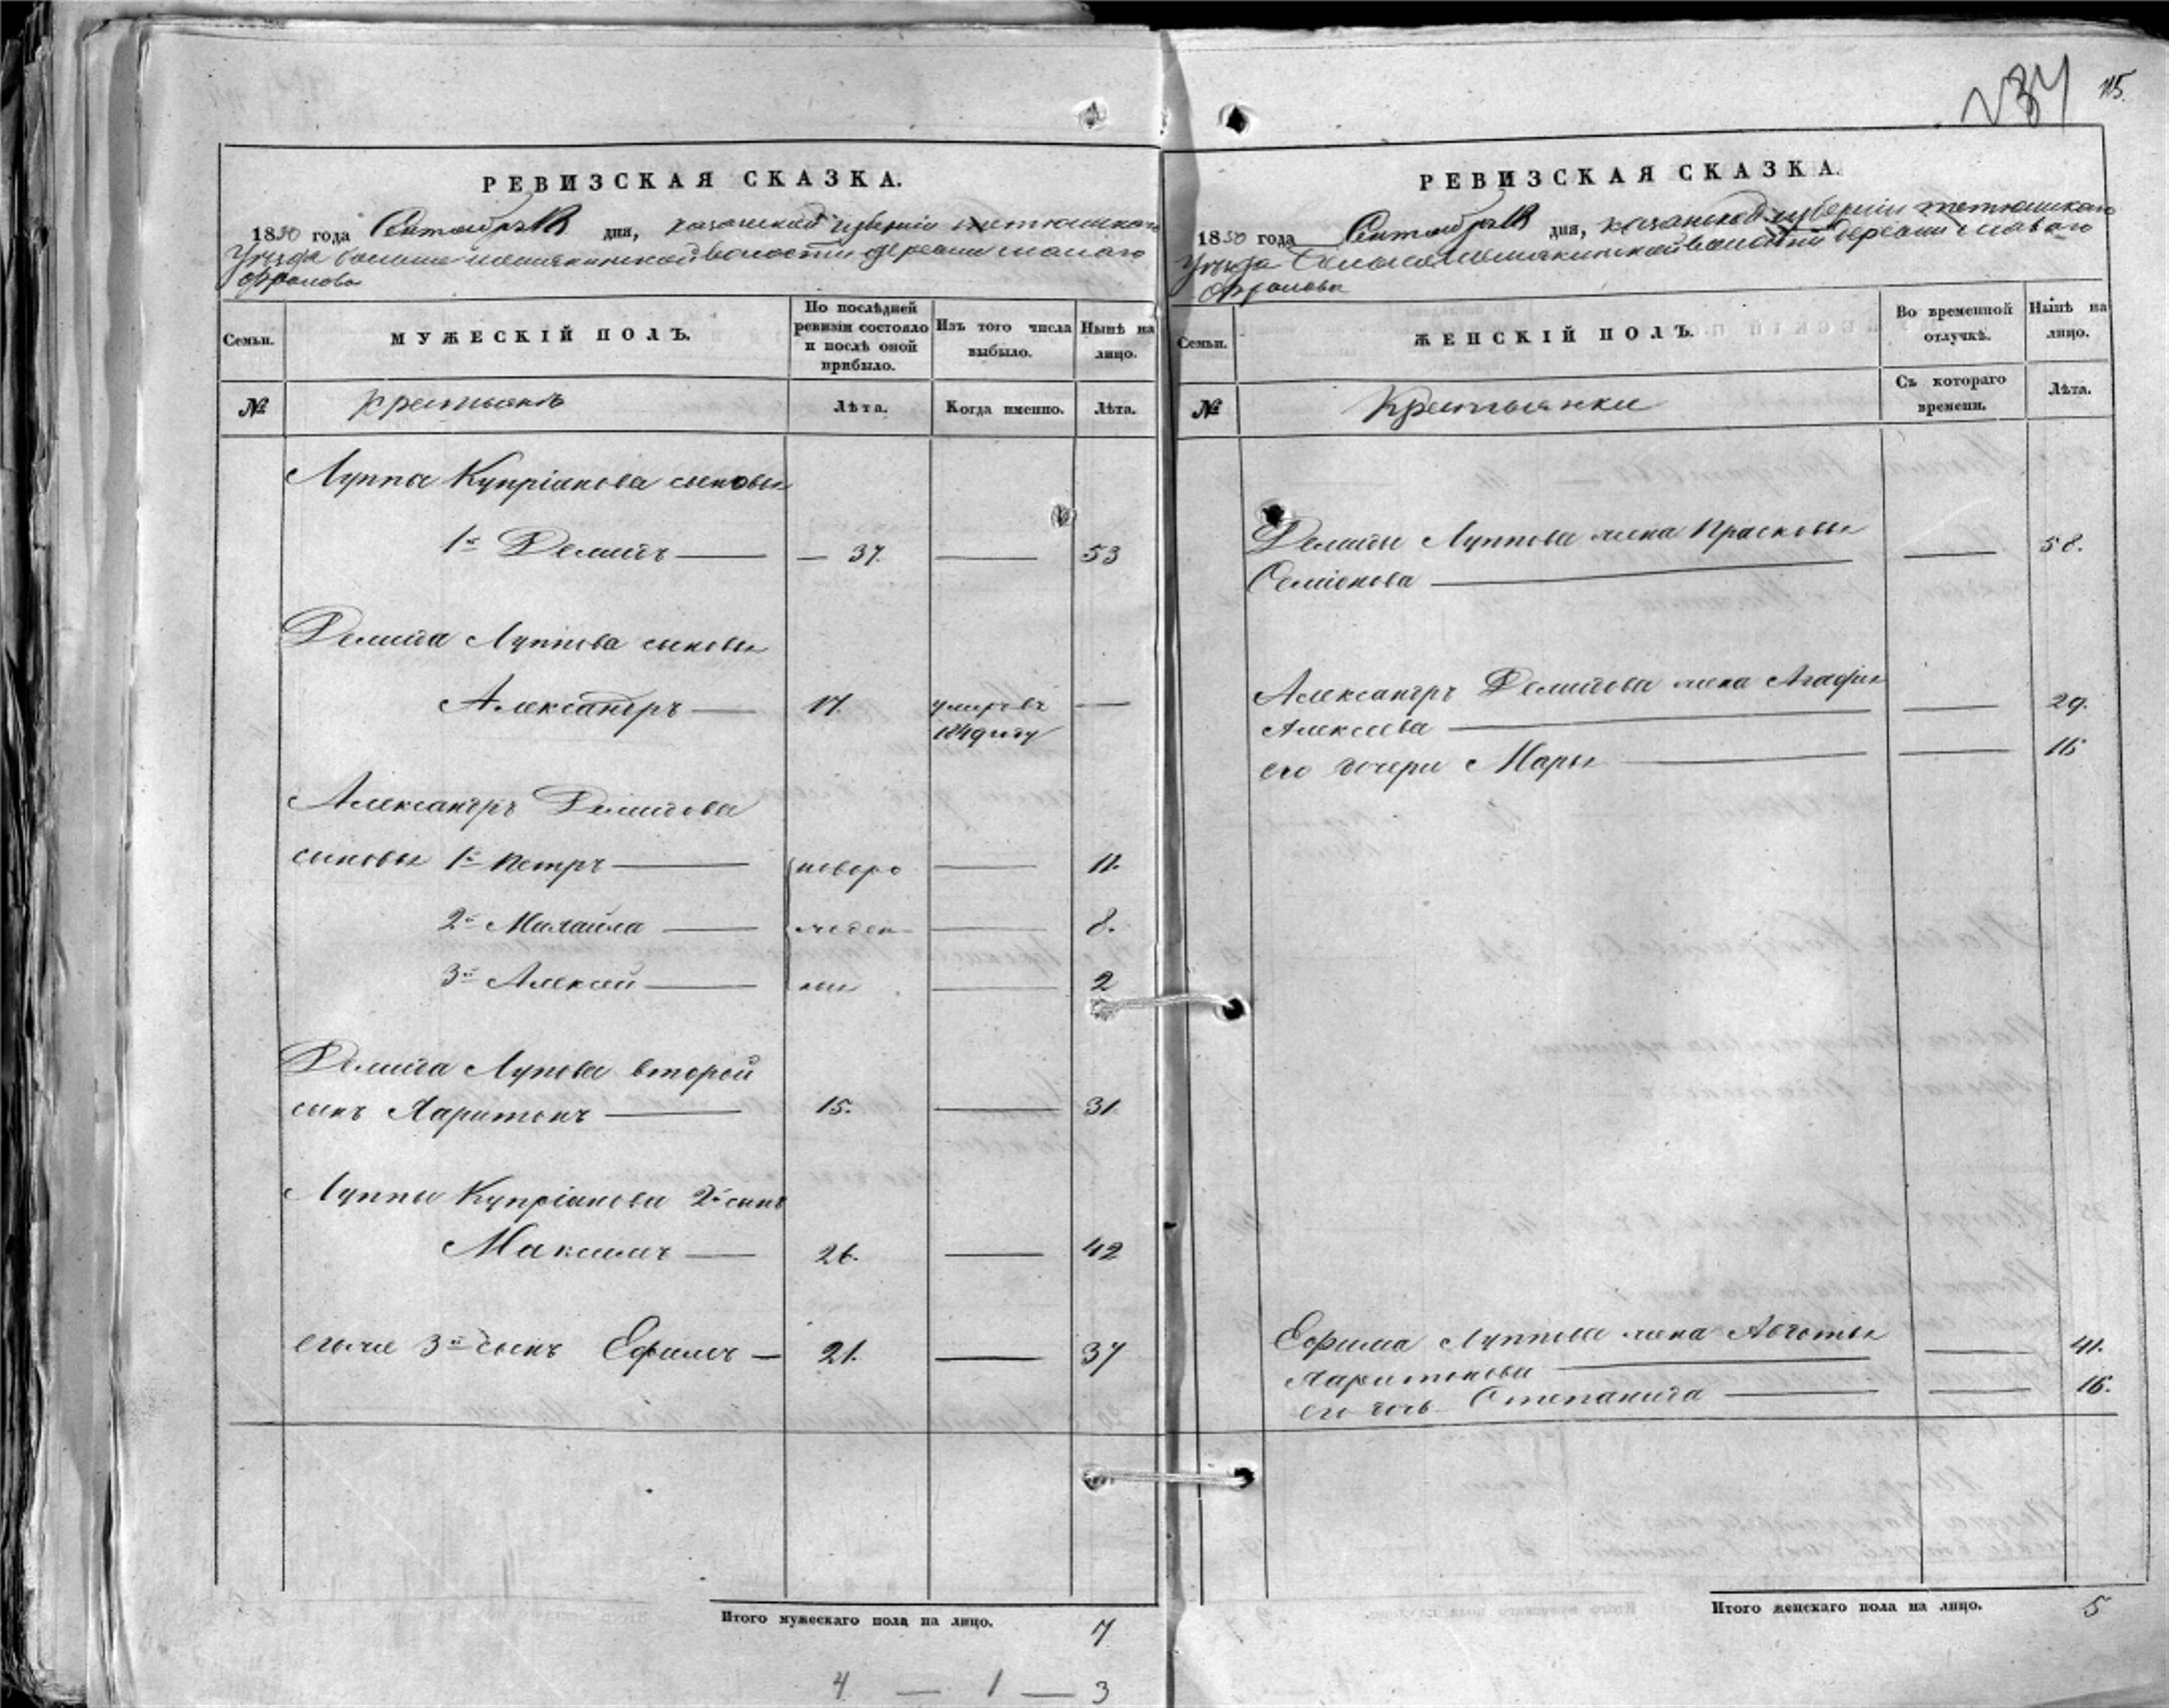 РЕВИЗСКАЯ СКАЗКА.
1850 года Сентября 18 дня, казанской губернии тетюшскаго
Уезда больше волости деревни малаго
Семьи.
МУЖЕСКІЙ ПОЛЪ.
По послѣдней ревизіи состояло и послѣ оной прибыло.
Изъ того числа выбыло.
Нынѣ на лицо.
№
крестьянъ
Лѣта.
Когда именно.
Лѣта.
Луппы Купріанова сыновья
1й Демидъ — 37. 53
Демида Луппова сыновья
Александръ 17. умеръ въ
1849 году
Александръ Демидова
сыновья 1й Петръ новоро 11.
2й Михайла жден 8.
3й Алексей ные 2
Демида Лупова второй
сынъ Харитонъ 15. 31
Луппы Купріанова 2й сынъ
Максимъ 26. 42
егоже 3й сынъ Ефимъ 21. 37
Итого мужескаго пола на лицо. 7
4 — 1 — 3
234 115.
РЕВИЗСКАЯ СКАЗКА.
1850 года Сентября 18 дня, казанской губернии тетюшскаго
Уезда волости деревни малаго
Семьи.
ЖЕНСКІЙ ПОЛЪ.
Во временной отлучкѣ.
Нынѣ на лицо.
№
Крестьянки
Съ котораго времени.
Лѣта.
Демиды Луппова жена Прасковья 58.
Семіонова
Александръ Демидова жена Агафья 29.
Алексеева
его дочери Марья 16
Ефима Луппова жена Авдотья 41.
Харитонова
его дочь Степанида 16.
Итого женскаго пола на лицо. 5